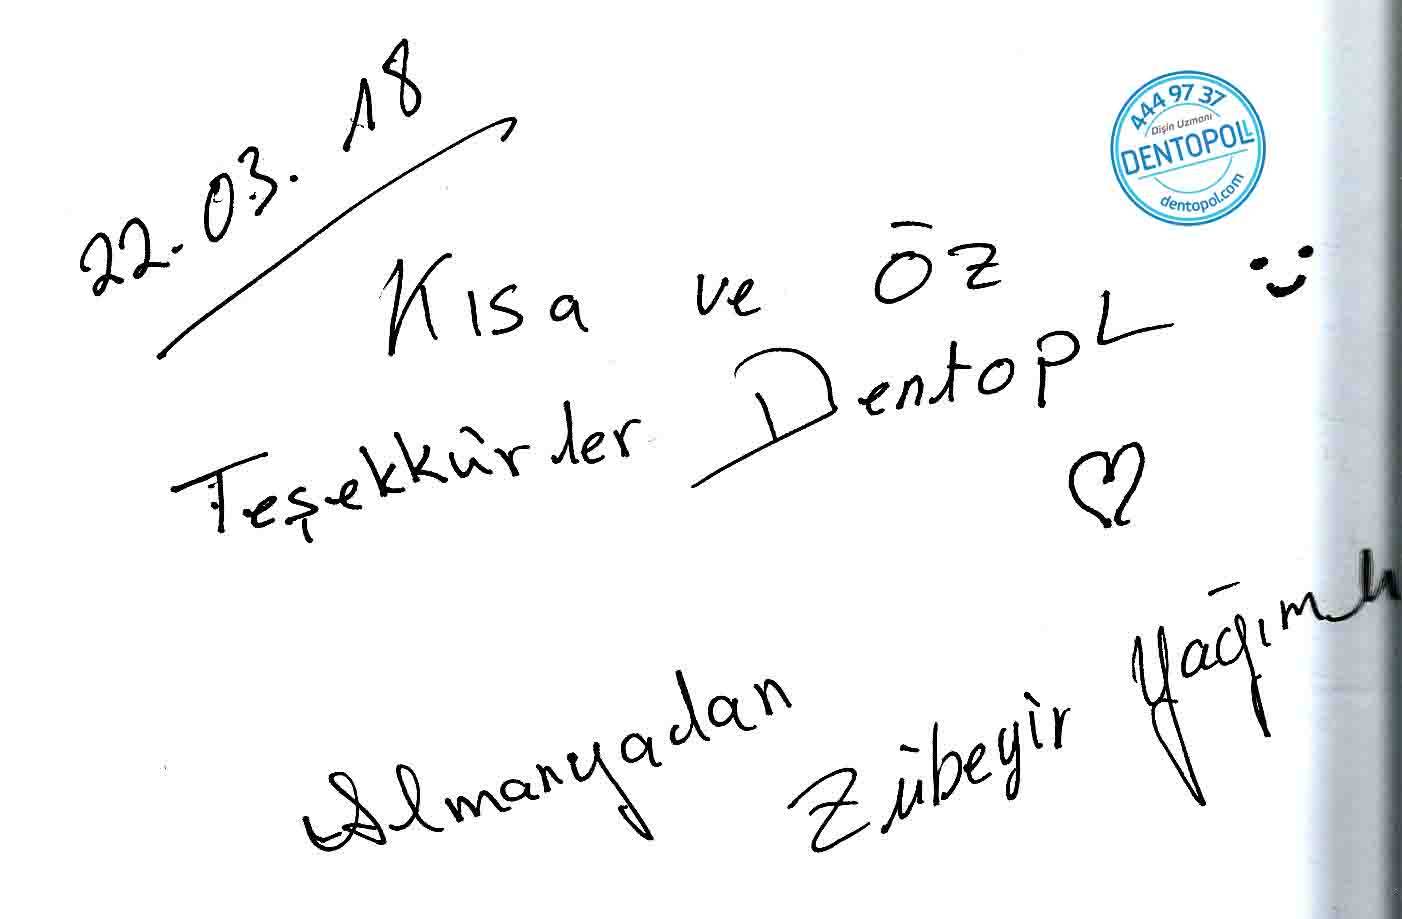 22.03.18
444 97 37
Dişin Uzmanı
DENTOPOLL
dentopol.com
Kısa ve öz
Teşekkürler DentopL
Almanyadan
Zübeyir